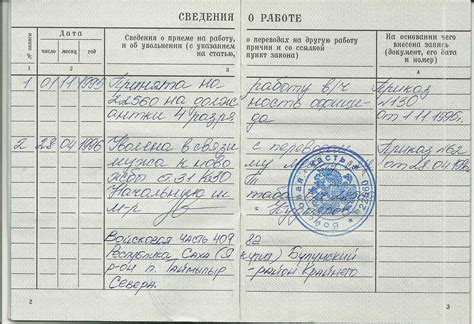 СВЕДЕНИЯ О РАБОТЕ
№ записи
Дата
число месяц год
Сведения о приеме на работу, о переводах на другую работу
и об увольнении (с указанием причин и со ссылкой
на статью, пункт закона)
На основании чего
внесена запись
(документ, его дата
и номер)
1 2 3 4
1 01 11 1995 Принята на работу в/ч Приказ
22560 на должность официантки №130
4 разряда от 1.11.1995г.
2 28 04 1996 Уволена в связи с переводом Приказ №62
мужа к новому от 28.04.1996
службы ст.31 КЗОТ
Начальник штаба
м-р
Войсковая часть 40982
Республика Саха (Якутия) Булунский
р-он п. Таймылыр район Крайнего
Севера.
2 3